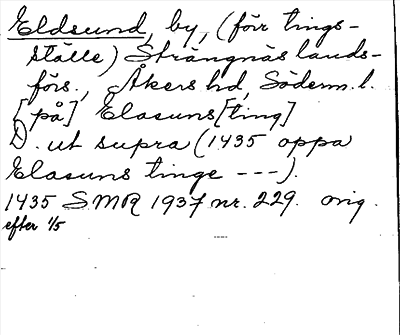 Eldsund, by, (förr tings-
ställe) Strängnäs lands-
förs., Åkers hd, Söderm. l.
[på] Elasuns[ting]
D. ut supra (1435 oppa
Elasuns tinge ---).
1435 SMR 1937 nr. 229. orig.
efter 1/5